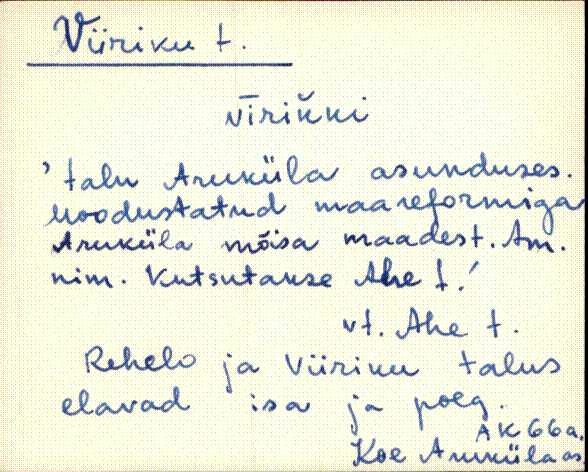 Viiriku t.
vīrikki
' talu Aruküla asunduses.
Moodustatud maareformiga
Aruküla mõisa maadest. Am.
nim. Kutsutakse Ahe t.'
vt. Ahe t.
Rehelo ja Viiriku talus
elavad isa ja poeg.
AK 66a.
Koe Aruküla as